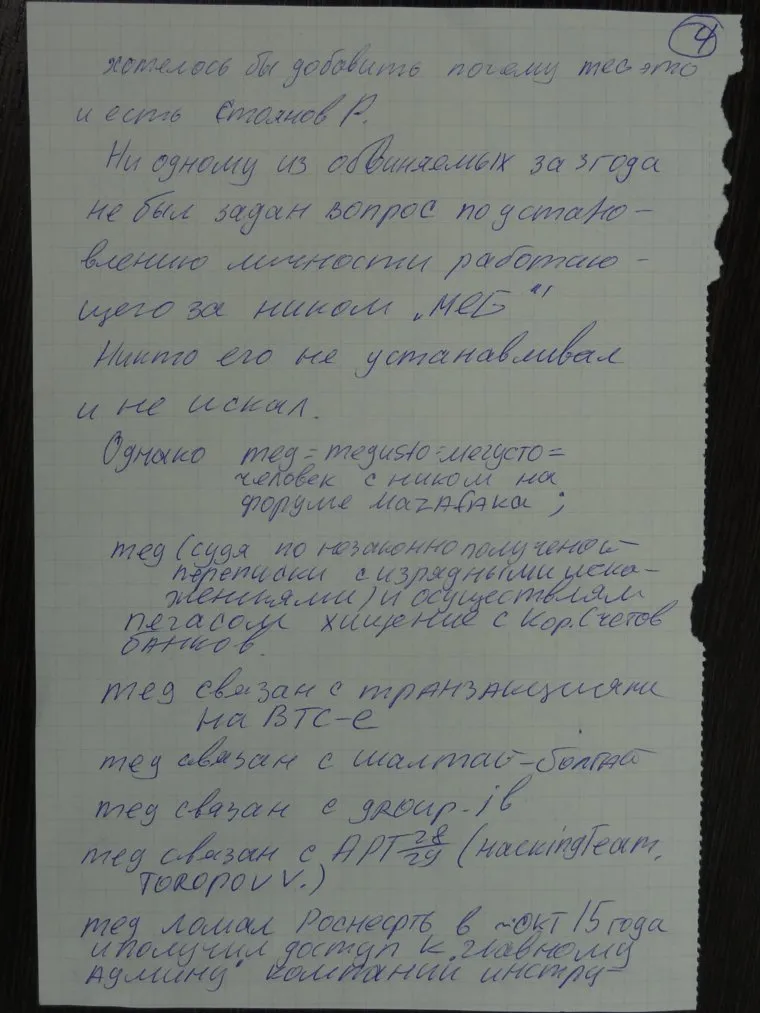 4
хотелось бы добавить почему meg это
и есть Стоянов Р.
Ни одному из обвиняемых за 3 года
не был задан вопрос по устано-
влению личности работаю-
щего за ником „МЕГ"
Никто его не устанавливал
и не искал.
Однако meg = megusto = мегусто =
человек с ником на
форуме MAZAfAKA;
meg (судя по незаконно полученой
переписки с изрядными иска-
жениями) и осуществлял
пегасом хищение с Кор. Счетов
банков.
meg связан с транзакциями
на BTC-e
meg связан с шалтай-болтай
meg связан с group-ib
meg связан с APT 28
29 (HackingTeam,
TOROPOV V.)
meg ломал Роснефть в ~окт 15 года
и получил доступ к главному
админу компании инстру-